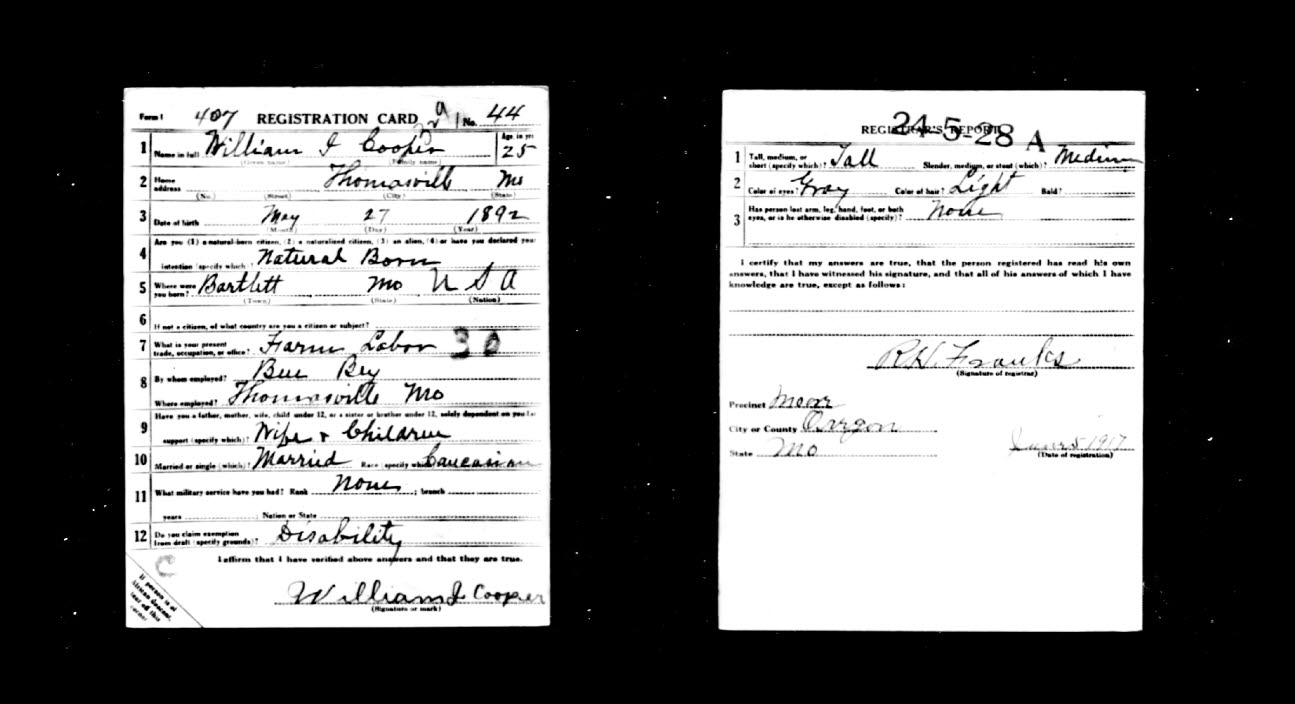 Form 1 407 REGISTRATION CARD No. 44
1 Name in full William J Cooper Age, in yrs 25
(Given name) (Family name)
2 Home address Thomasville Mo
(No.) (Street) (City) (State)
3 Date of birth May 27 1892
(Month) (Day) (Year)
4 Are you (1) a natural-born citizen, (2) a naturalized citizen, (3) an alien, (4) or have you declared your
intention (specify which)? Natural Born
5 Where were you born? Bartlett Mo U S A
(Town) (State) (Nation)
6 If not a citizen, of what country are you a citizen or subject?
7 What is your present trade, occupation, or office? Farm Labor 30
8 By whom employed?
Where employed? Thomasville Mo
9 Have you a father, mother, wife, child under 12, or a sister or brother under 12, solely dependent on you for
support (specify which)? Wife & Children
10 Married or single (which)? Married Race (specify which)? Caucasian
11 What military service have you had? Rank None ; branch
years ; Nation or State
12 Do you claim exemption from draft (specify grounds)? Disability
I affirm that I have verified above answers and that they are true.
C
William J Cooper
(Signature or mark)
If person is of
African descent,
tear off this
corner
24-5-28 A
REGISTRAR'S REPORT
1 Tall, medium, or short (specify which)? Tall Slender, medium, or stout (which)? Medium
2 Color of eyes? Gray Color of hair? Light Bald?
3 Has person lost arm, leg, hand, foot, or both eyes, or is he otherwise disabled (specify)? None
I certify that my answers are true, that the person registered has read his own
answers, that I have witnessed his signature, and that all of his answers of which I have
knowledge are true, except as follows:
R.W. Franks
(Signature of registrar)
Precinct
City or County Oregon
State Mo June 5 1917
(Date of registration)